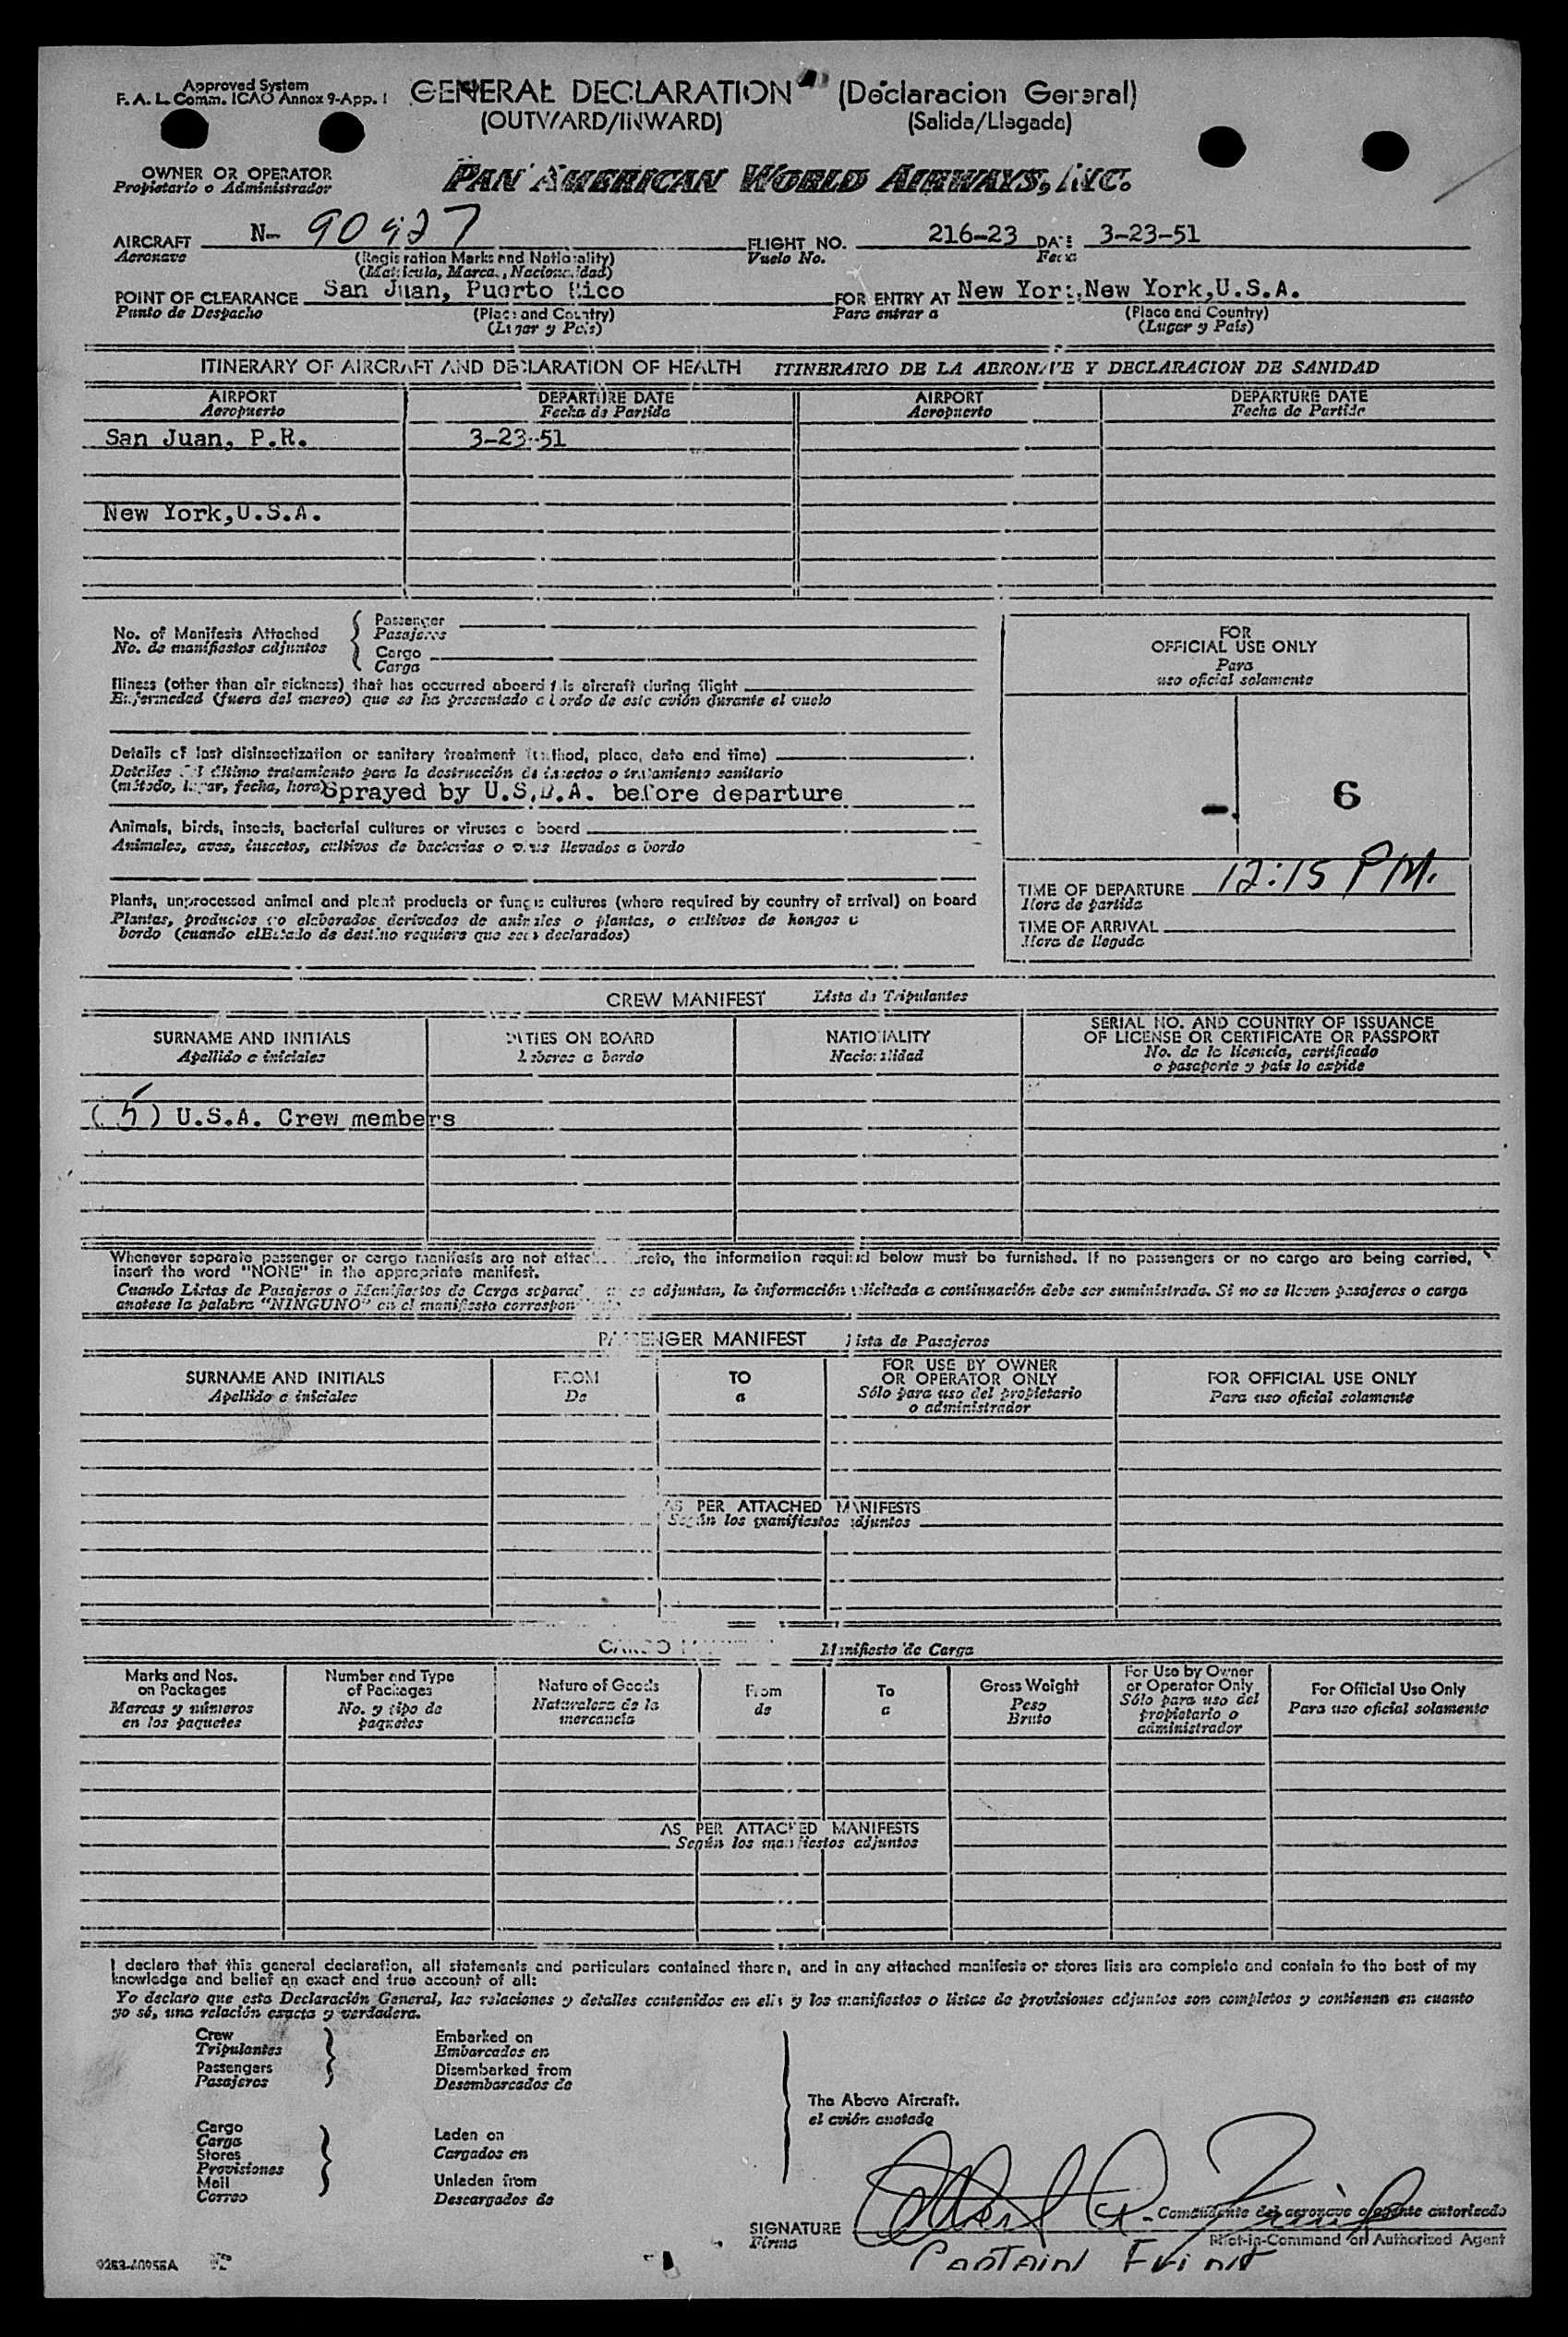 Approved System
F. A. L. Comm. ICAO Annex 9-App. I
GENERAL DECLARATION (Declaracion General)
(OUTWARD/INWARD) (Salida/Llegada)
OWNER OR OPERATOR
Propietario o Administrador
PAN AMERICAN WORLD AIRWAYS, INC.
AIRCRAFT N- 90927 FLIGHT NO. 216-23 DATE 3-23-51
Aeronave (Registration Marks and Nationality) Vuelo No. Fecha
(Matricula, Marca, Nacionalidad)
POINT OF CLEARANCE San Juan, Puerto Rico FOR ENTRY AT New York, New York, U.S.A.
Punto de Despacho (Place and Country) Para entrar a (Place and Country)
(Lugar y País) (Lugar y País)
ITINERARY OF AIRCRAFT AND DECLARATION OF HEALTH ITINERARIO DE LA AERONAVE Y DECLARACION DE SANIDAD
AIRPORT DEPARTURE DATE AIRPORT DEPARTURE DATE
Aeropuerto Fecha de Partida Aeropuerto Fecha de Partida
San Juan, P.R. 3-23-51
New York,U.S.A.
No. of Manifests Attached
No. de manifiestos adjuntos
Passenger
Pasajeros
Cargo
Carga
FOR
OFFICIAL USE ONLY
Para
uso oficial solamente
Illness (other than air sickness) that has occurred aboard this aircraft during flight
Enfermedad (fuera del mareo) que se ha presentado a bordo de este avión durante el vuelo
Details of last disinsectization or sanitary treatment (method, place, date and time)
Detalles del último tratamiento para la destrucción de insectos o tratamiento sanitario
(método, lugar, fecha, hora) Sprayed by U.S.D.A. before departure
- 6
Animals, birds, insects, bacterial cultures or viruses on board
Animales, aves, insectos, cultivos de bacterias o virus llevados a bordo
Plants, unprocessed animal and plant products or fungus cultures (where required by country of arrival) on board
Plantas, productos no elaborados derivados de animales o plantas, o cultivos de hongos a
bordo (cuando el Estado de destino requiera que sean declarados)
TIME OF DEPARTURE 12:15 PM.
Hora de partida
TIME OF ARRIVAL
Hora de llegada
CREW MANIFEST Lista de Tripulantes
SURNAME AND INITIALS DUTIES ON BOARD NATIONALITY SERIAL NO. AND COUNTRY OF ISSUANCE
OF LICENSE OR CERTIFICATE OR PASSPORT
Apellido e iniciales Labores a bordo Nacionalidad No. de la licencia, certificado
o pasaporte y país lo expide
(5) U.S.A. Crew members
Whenever separate passenger or cargo manifests are not attached hereto, the information required below must be furnished. If no passengers or no cargo are being carried,
insert the word "NONE" in the appropriate manifest.
Cuando Listas de Pasajeros o Manifiestos de Carga separados no se adjuntan, la información solicitada a continuación debe ser suministrada. Si no se llevan pasajeros o carga
anotese la palabra "NINGUNO" en el manifiesto correspondiente
PASSENGER MANIFEST Lista de Pasajeros
SURNAME AND INITIALS FROM TO FOR USE BY OWNER
OR OPERATOR ONLY FOR OFFICIAL USE ONLY
Apellido e iniciales De a Sólo para uso del propietario
o administrador Para uso oficial solamente
AS PER ATTACHED MANIFESTS
Según los manifiestos adjuntos
CARGO MANIFEST Manifiesto de Carga
Marks and Nos.
on Packages
Marcas y números
en los paquetes
Number and Type
of Packages
No. y tipo de
paquetes
Nature of Goods
Naturaleza de la
mercancía
From
de
To
a
Gross Weight
Peso
Bruto
For Use by Owner
or Operator Only
Sólo para uso del
propietario o
administrador
For Official Use Only
Para uso oficial solamente
AS PER ATTACHED MANIFESTS
Según los manifiestos adjuntos
I declare that this general declaration, all statements and particulars contained therein, and in any attached manifests or stores lists are complete and contain to the best of my
knowledge and belief an exact and true account of all:
Yo declaro que esta Declaración General, las relaciones y detalles contenidos en ella y los manifiestos o listas de provisiones adjuntos son completos y contienen en cuanto
yo sé, una relación exacta y verdadera.
Crew
Tripulantes
Passengers
Pasajeros
Embarked on
Embarcados en
Disembarked from
Desembarcados de
Cargo
Carga
Stores
Provisiones
Mail
Correo
Laden on
Cargados en
Unladen from
Descargados de
The Above Aircraft.
el avión anotado
Comandante del aeronave o agente autorizado
SIGNATURE
Firma
Pilot-in-Command or Authorized Agent
Captain
9263-40955A